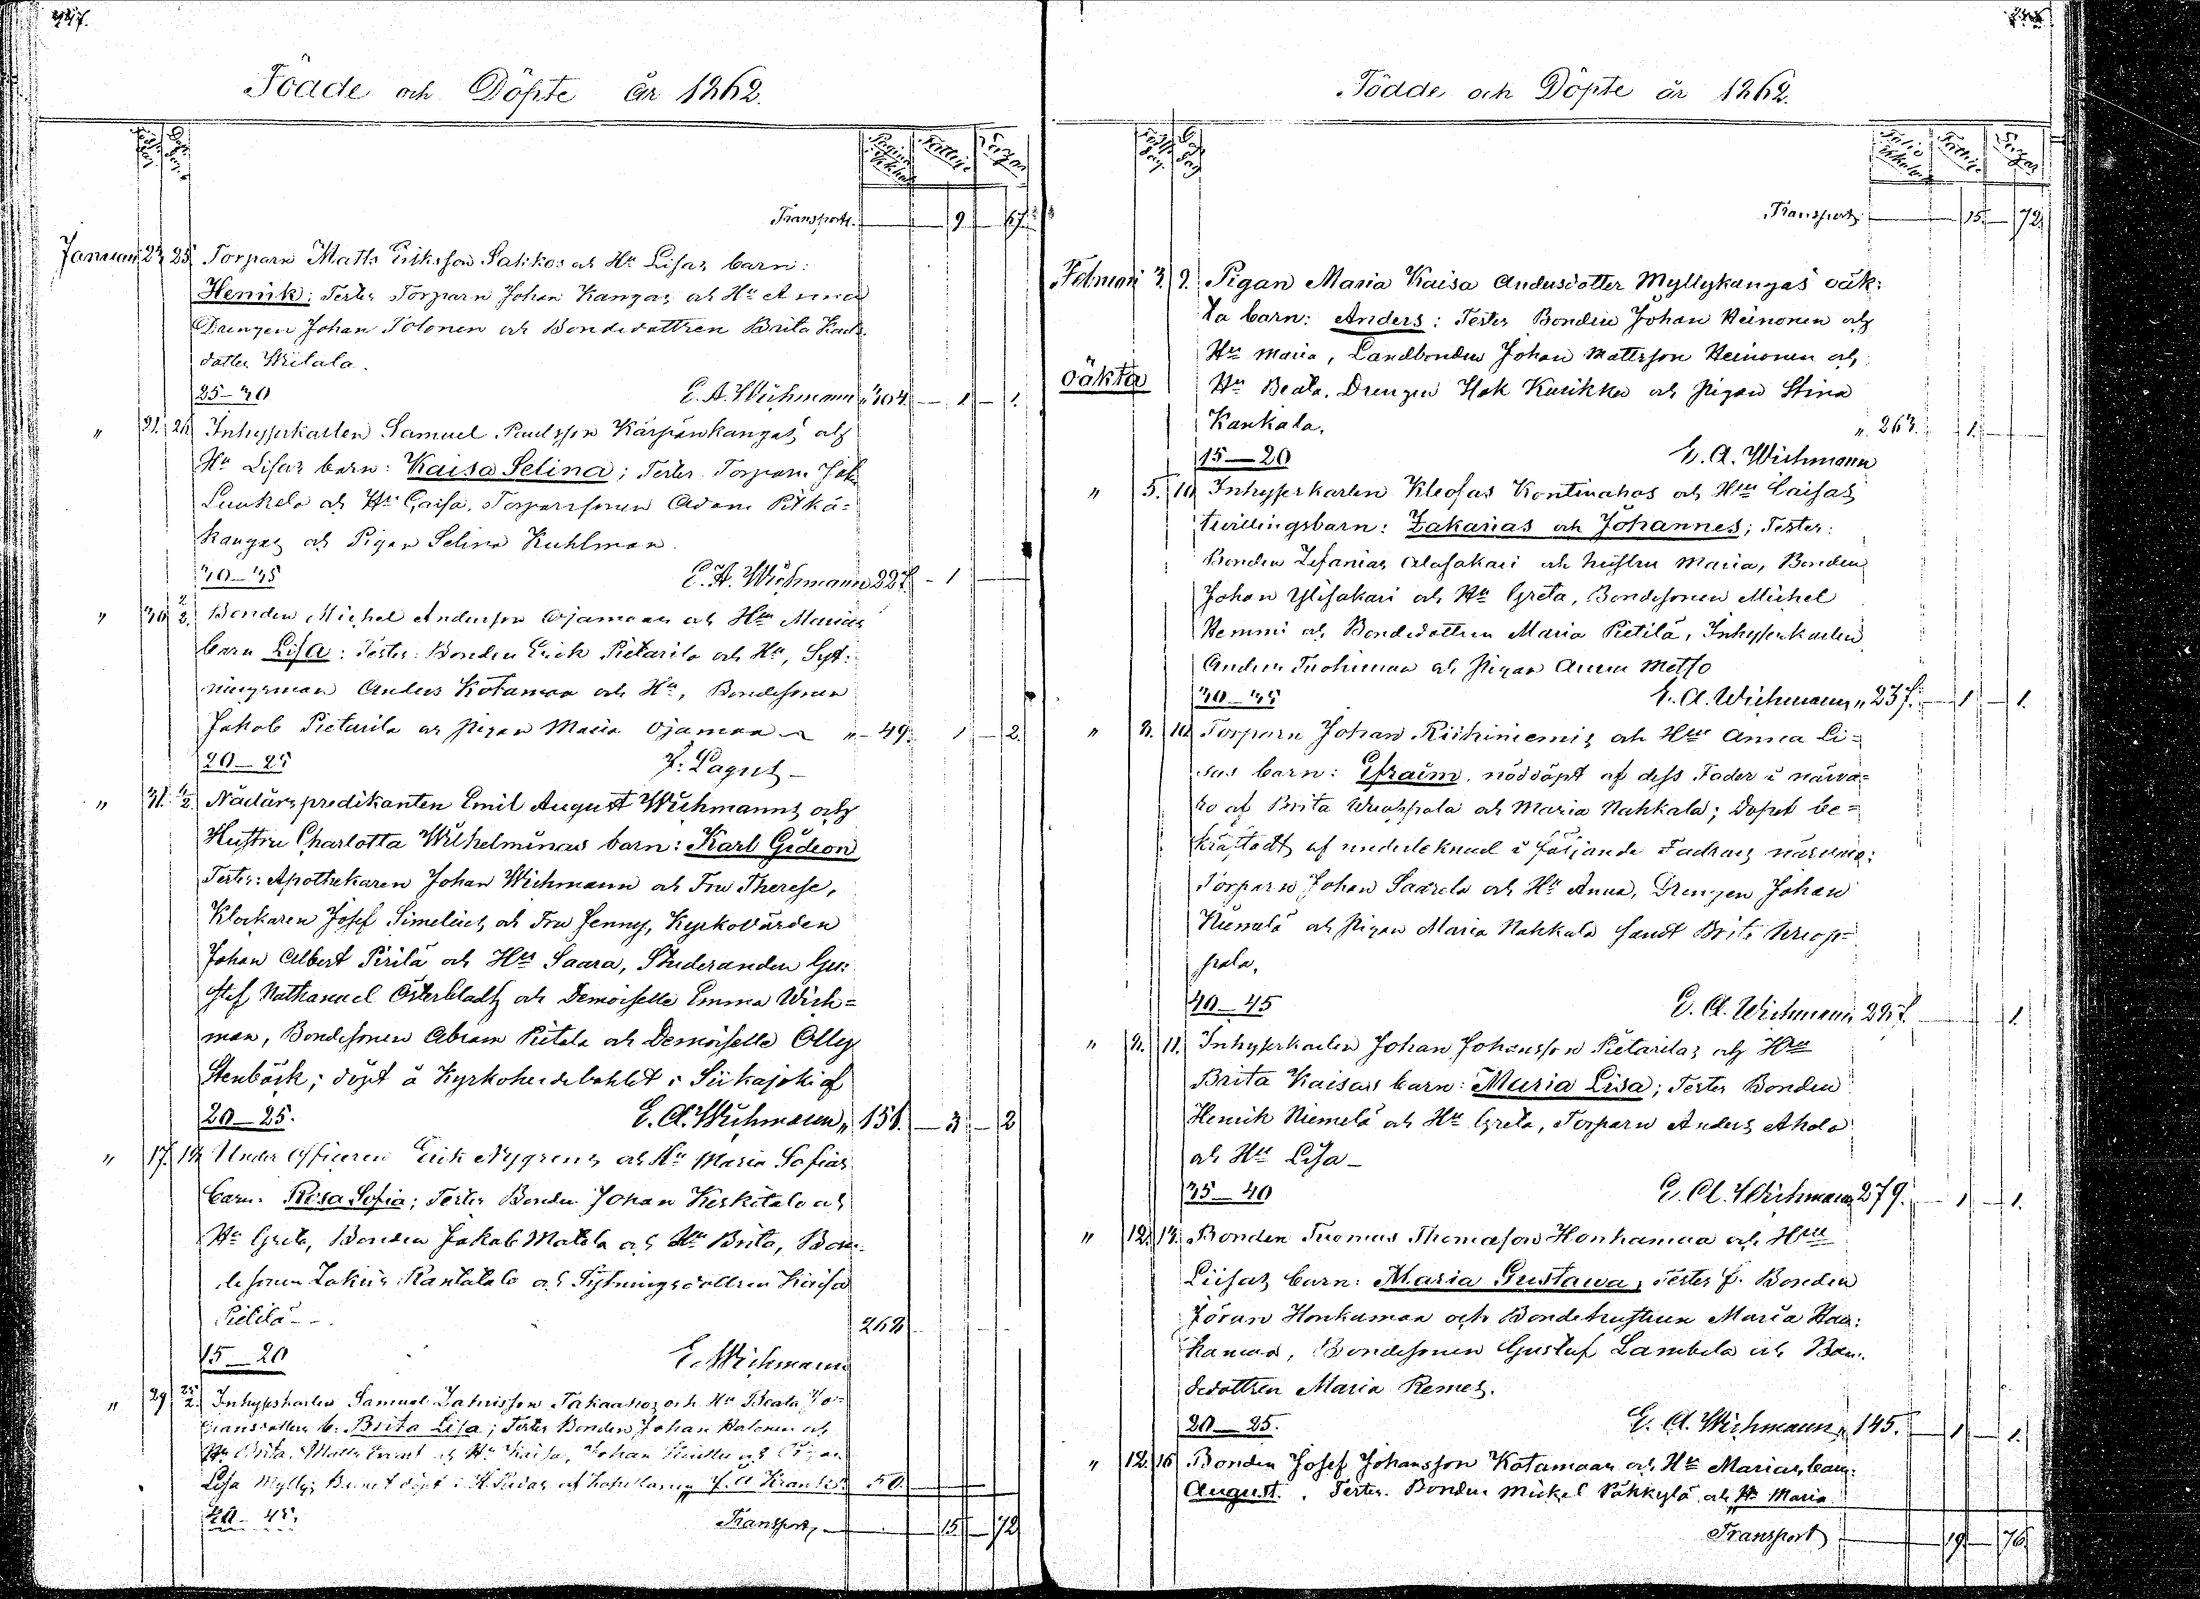 Födde och Döpte år 1862.
Transport. 9 67.
Januari 23 25 Torparn Matts Eriksson Sakkos och Hu Lisas barn:
Henrik; Testes Torparn Johan Kangas och Hu Anna
Drengen Johan Tolonen och Bondedottren Brita
dotter
25–30 E. A. Wichmann 304. 1 1.
" 21. 26 Inhyseskarlen Samuel Paulsson Kärpänkangas och
Hu Lisas barn: Kaisa Selina; Testes Torparn Jak
Luukela och Hu Caisa, Torparesonen Adam Pitkä=
kangas och Pigan Selina Kuhlman.
30–35 E. A. Wichmann 227. 1
" 30 2/2. Bonden Michel Andersson Ojamaas och Hu Marias
barn Lisa: Testes: Bonden Erick Pietarila och Hu, Syt-
ningsman Anders Kotamaa och Hu, Bondesonen
Jakob Pietarila och Pigan Maria Ojamaa " 49. 1 2.
20–25 F. Lagus
" 31. 4/2 Nådårspredikanten Emil August Wichmanns och
Hustru Charlotta Wilhelminas barn: Karl Gideon
Testes: Apothekaren Johan Wichmann och Fru Therese,
Klockaren Josef Simelius och Fru Jenny, Kyrkovärden
Johan Albert Pirilä och Hu Saara, Studeranden Gu:
stef Nathanael Österbladh och Demoiselle Emma Wich=
man, Bondesonen Abram Pietola och Demoiselle Olly
Stenbäck; döpt å Kyrkoherdebohlet i Siikajoki af
20–25. E. A. Wichmann " 151. 3 2
" 17. 19. Under Officeren Erik Nygrens och Hu Maria Sofias
barn: Rosa Sofia; Testes Bonden Johan Keskitalo och
Hu Greta, Bonden Jakob Matila och Hu Brita, Bon-
desonen Zakris Rantatalo och Sytningsdottren Kaisa
Pietilä 262
15–20 E. Wichmann
" 29 25/2. Inhyseskarlen Samuel och Hu Beata Jo-
hansdotters b. Brita Lisa; Testes Bonden Johan Halonen och
Hu Brita, och Hu Kaisa, Johan och Pigan
Lisa Mylly; Barnet döpt i af 50.
40–45. Transport, 15 72
Födde och Döpte år 1862.
Transport 15. 72.
Februari 3. 9. Pigan Maria Kaisa Andersdotter Myllykangas' oäk:
ta barn: Anders: Testes Bonden Johan Heinonen och
Hu Maria, Landbonden Johan Mattsson Heinonen och
oäkta Hu Beata, Drengen Isak Kurikka och Pigan Stina
Kankala. " 263. 1.
15–20 E. A. Wichmann
" 5. 10. Inhyseskarlen Kleofas Kontinahos och Hus Caisas
tvillingsbarn: Zakarias och Johannes; Testes:
Bonden Zefanias Alasakari och hustru Maria, Bonden
Johan Ylisakari och Hu Greta, Bondesonen Michel
Hemmi och Bondedottren Maria Pietilä, Inhyseskarlen
Anders Tuohimaa och Pigan Anna Metso
30–35 E. A. Wichmann " 237. 1 1.
" 8. 10. Torparn Johan Riihiniemis och Hus Anna Li=
sas barn: Efraim. nöddöpt af dess Fader i närva=
ro af Brita Wuoppala och Maria Nahkala; Dopet be=
kräftadt af undertecknad i följande Fadrars närvaro:
Torparn Johan Saarela och Hu Anna, Drengen Johan
Niemelä och Pigan Maria Nahkala samt Brita Wuop=
pala.
40–45 E. A. Wichmann 297. 1.
" 8. 11. Inhyseskarlen Johan Johansson Pietarilas och Hus
Brita Kaisas barn: Maria Lisa; Testes Bonden
Henrik Niemelä och Hu Greta, Torparn Anders Ahola
och Hu Lisa
35–40 E. A. Wichmann 279. 1 1.
" 12. 13. Bonden Thomas Thomasson Honkamaa och Hus
Liisas barn: Maria Gustava, Testes f. Bonden
Jöran Honkamaa och Bondehustrun Maria Hon:
kamaa, Bondesonen Gustaf Lambela och Bon-
dedottren Maria Remes.
20–25. E. A. Wichmann " 145. 1 1.
" 12. 16 Bonden Josef Johansson Kotamaas och Hu Marias barn:
August. Testes. Bonden Mickel Pökkylä och Hu Maria
Transport 19 76.